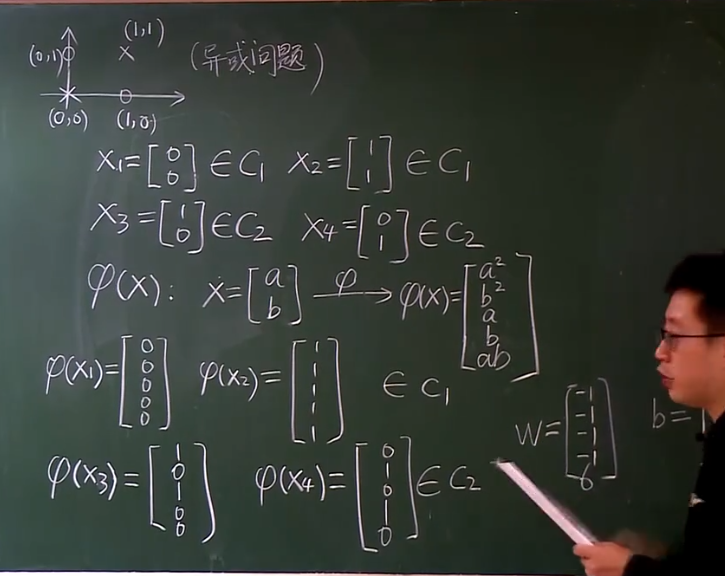 (1,1)
(0,1) (异或问题)
(0,0) (1,0)
X₁=[0 0] ∈ C₁ X₂=[1 1] ∈ C₁
X₃=[1 0] ∈ C₂ X₄=[0 1] ∈ C₂
φ(X): X=[a b] —φ→ φ(X)=[a² b² a b ab]
φ(X₁)=[0 0 0 0 0] φ(X₂)=[1 1 1 1 1] ∈ C₁
W=[-1 -1 -1 -1 6] b=1
φ(X₃)=[1 0 1 0 0] φ(X₄)=[0 1 0 1 0] ∈ C₂